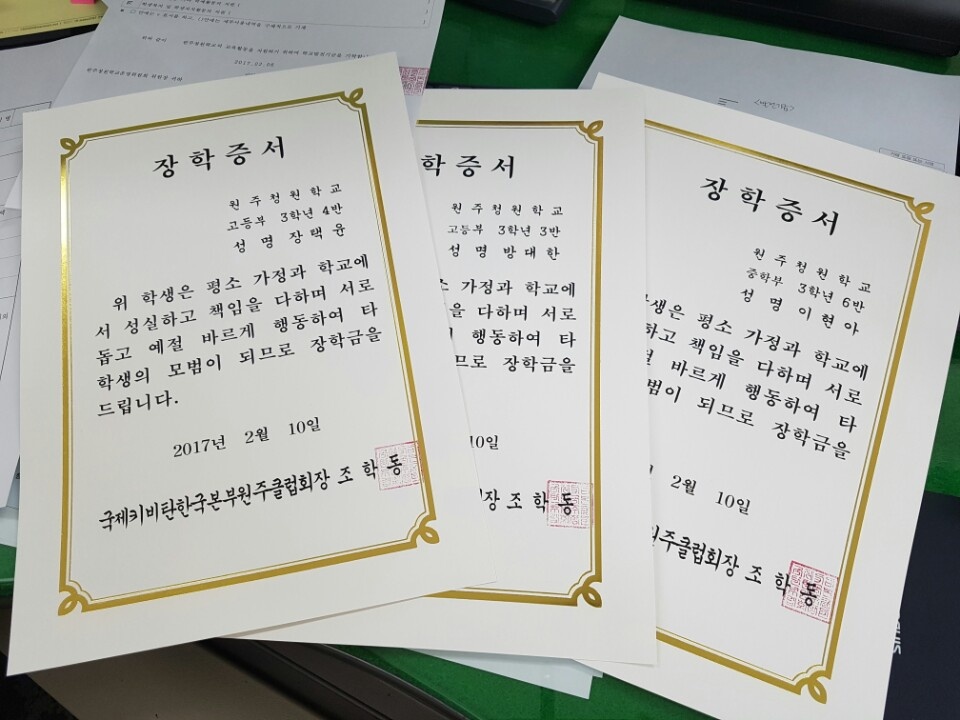 2017.02.06
장학증서
원주청원학교
고등부 3학년 4반
성명 장택윤
위 학생은 평소 가정과 학교에
서 성실하고 책임을 다하며 서로
돕고 예절 바르게 행동하여 타
학생의 모범이 되므로 장학금을
드립니다.
2017년 2월 10일
국제키비탄한국본부원주클럽회장 조학동
학증서
원주청원학교
고등부 3학년 3반
성명 방대한
가정과 학교에
을 다하며 서로
행동하여 타
므로 장학금을
10일
장 조학동
장학증서
원주청원학교
중학부 3학년 6반
성명 이현아
학생은 평소 가정과 학교에
하고 책임을 다하며 서로
바르게 행동하여 타
범이 되므로 장학금을
2월 10일
원주클럽회장 조학동